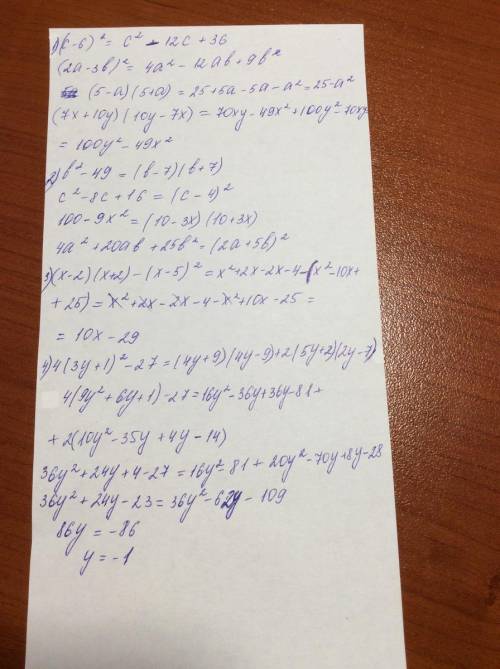 1)(c-6)² = c² - 12c + 36
(2a-3b)² = 4a² - 12ab + 9b²
(5-a)(5+a) = 25+5a-5a-a² = 25-a²
(7x+10y)(10y-7x) = 70xy-49x²+100y²-70xy
= 100y² - 49x²
2) b² - 49 = (b-7)(b+7)
c² - 8c + 16 = (c-4)²
100 - 9x² = (10-3x)(10+3x)
4a² + 20ab + 25b² = (2a+5b)²
3)(x-2)(x+2) - (x-5)² = x²+2x-2x-4-(x²-10x+
+25) = x²+2x-2x-4-x²+10x-25 =
= 10x - 29
4) 4(3y+1)² - 27 = (4y+9)(4y-9)+2(5y+2)(2y-7)
4(9y²+6y+1)-27 = 16y²-36y+36y-81+
+2(10y²-35y+4y-14)
36y²+24y+4-27 = 16y²-81+20y²-70y+8y-28
36y²+24y-23 = 36y²-62y-109
86y = -86
y = -1